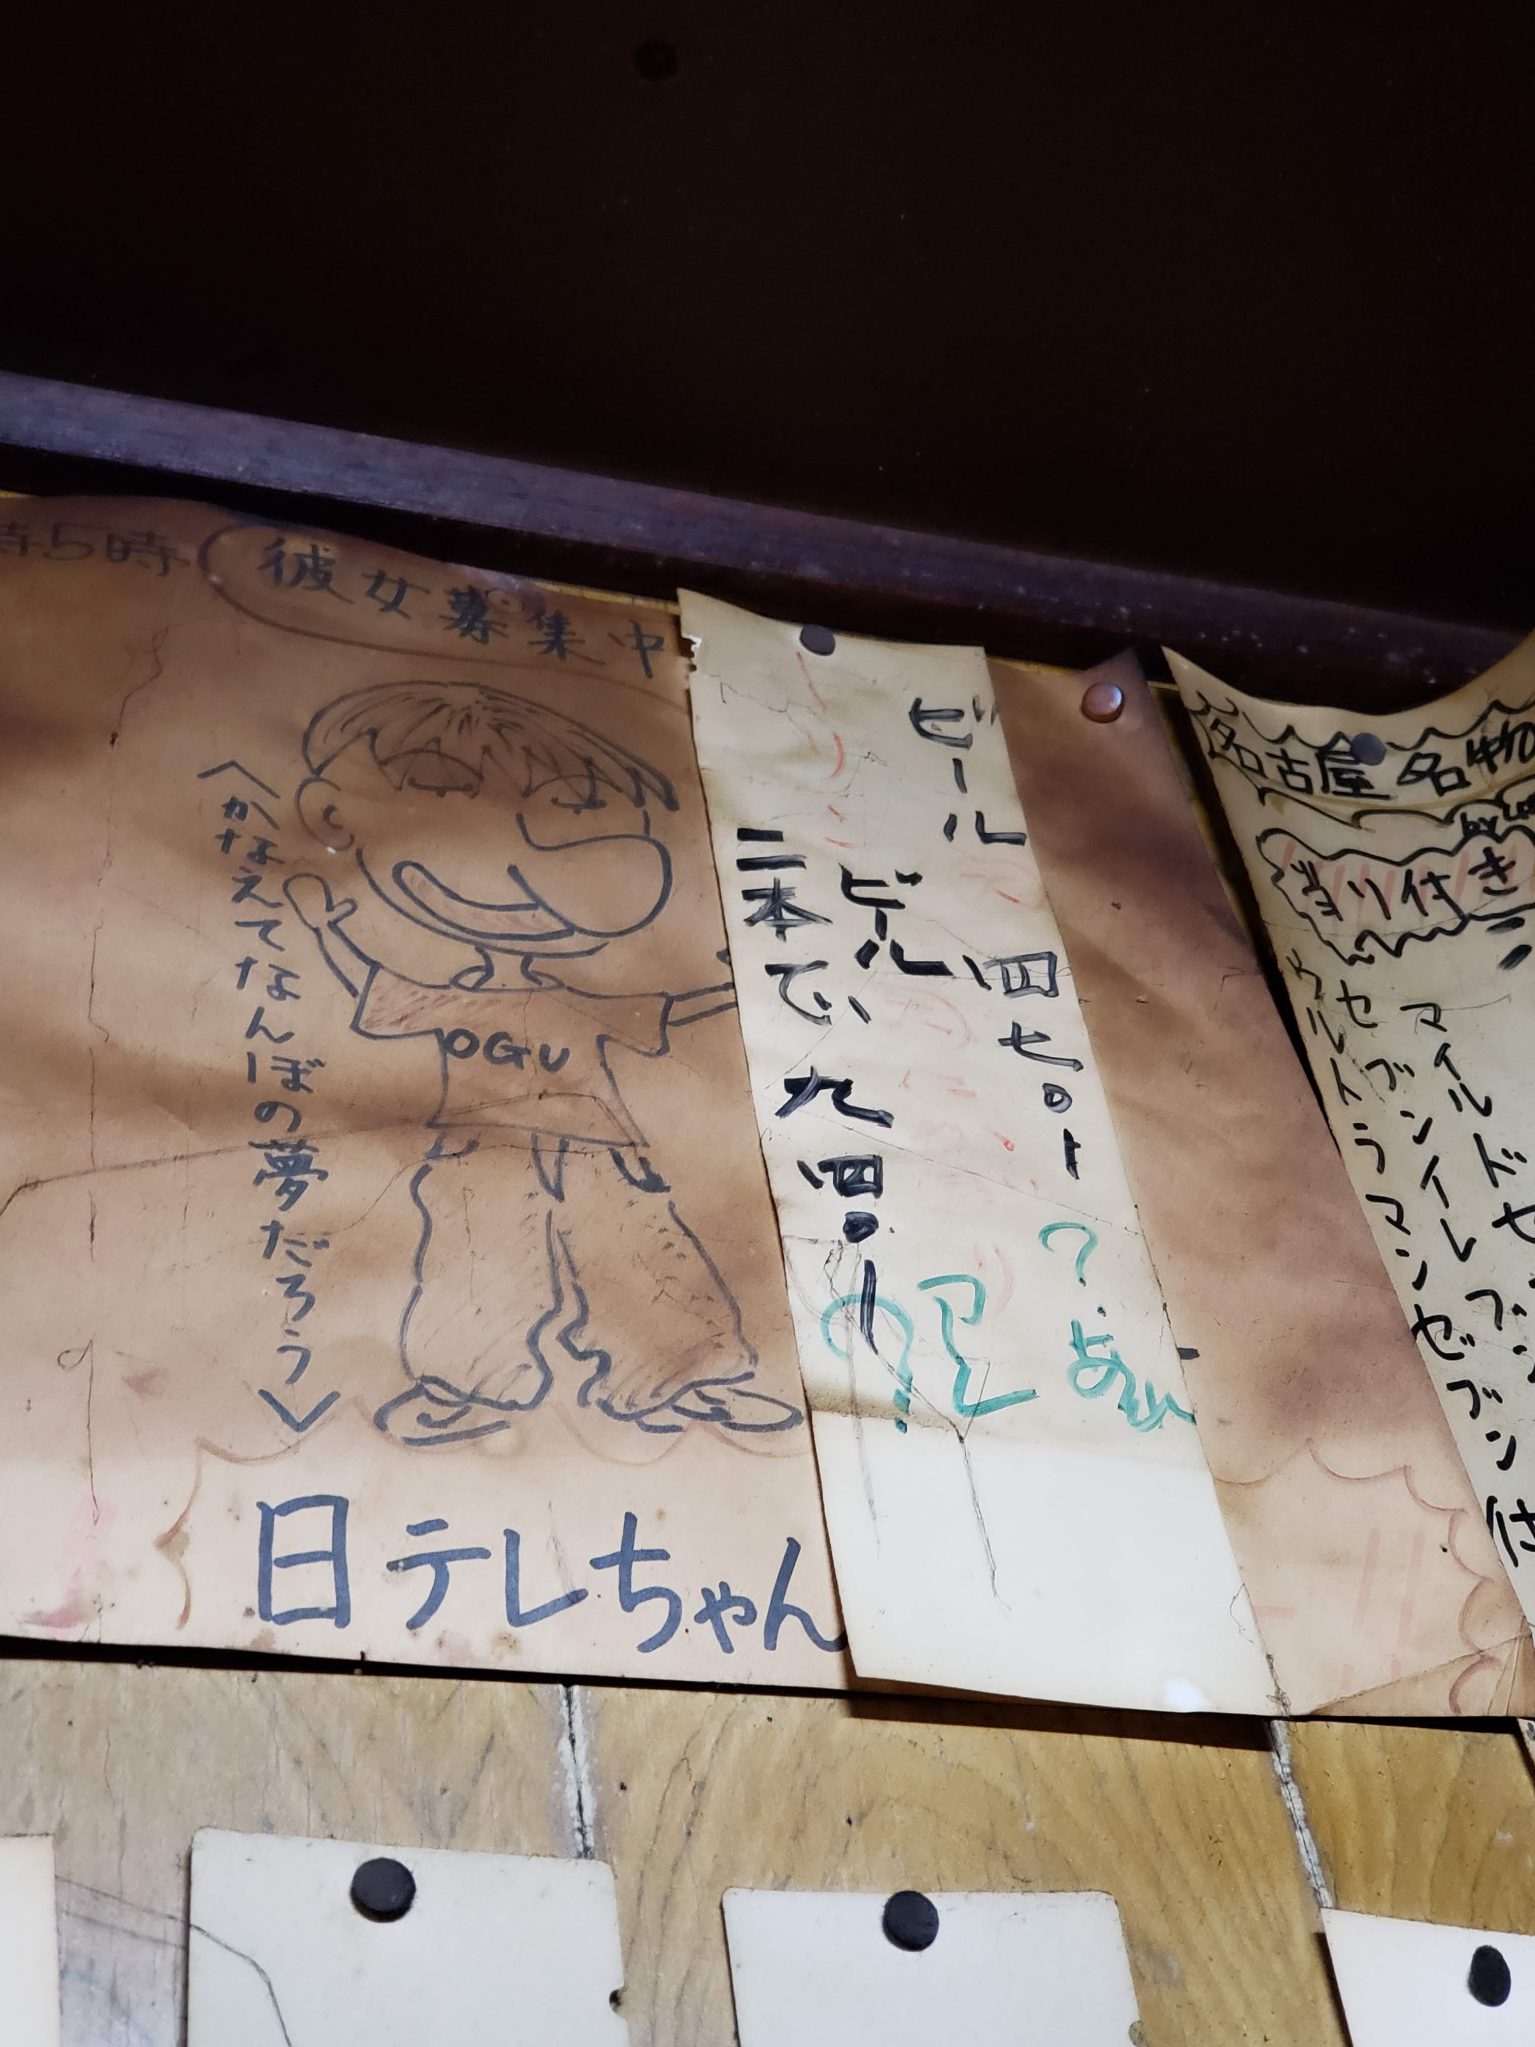 時5時
彼女募集中
OGU
<かなえてなんぼの夢だろう>
日テレちゃん
ビール 四七〇ー
ビール
二本で、九四〇ー
?
アレ
の!
名古屋名物
当り付き
マイルドセブン
セブンイレブン付
ケルイラマンセブン